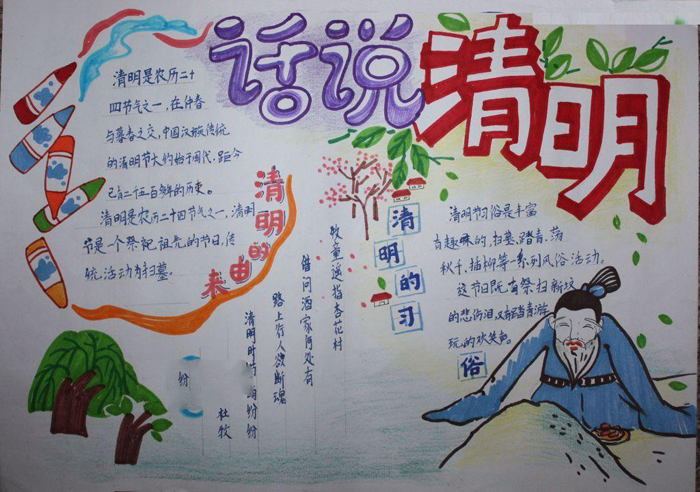 话说清明
清明的由来
清明是农历二十
四节气之一，在仲春
与暮春之交，中国汉族传统
的清明节大约始于周代，距今
已有二千五百多年的历史。
清明是农历二十四节气之一，清明
节是一个祭祀祖先的节日，传
统活动为扫墓。
杜牧
清明时节雨纷纷
路上行人欲断魂
借问酒家何处有
牧童遥指杏花村
清明的习俗
清明节习俗是丰富
有趣味的，扫墓、踏青、荡
秋千、插柳等一系列风俗活动。
这节日既有祭扫新坟
的悲伤泪，又有踏青游
玩的欢笑声。